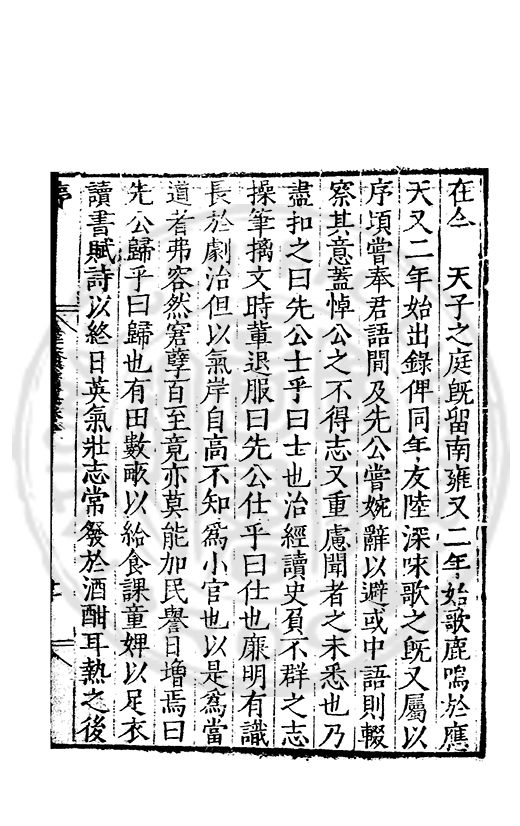 在今　天子之庭既留南雍又二年始歌鹿鳴於應
天又二年始出錄俾同年友陸深味歌之既又屬以
序頃嘗奉君語閒及先公嘗婉辭以避或中語則輟
察其意蓋悼公之不得志又重慮聞者之未悉也乃
盡扣之曰先公士乎曰士也治經讀史負不群之志
操筆摛文時輩退服曰先公仕乎曰仕也廉明有識
長於劇治但以氣岸自高不知爲小官也以是爲當
道者弗容然窘孽百至竟亦莫能加民譽日增焉曰
先公歸乎曰歸也有田數畝以給食課童婢以足衣
讀書賦詩以終日英氣壯志常發於酒酣耳熱之後
序